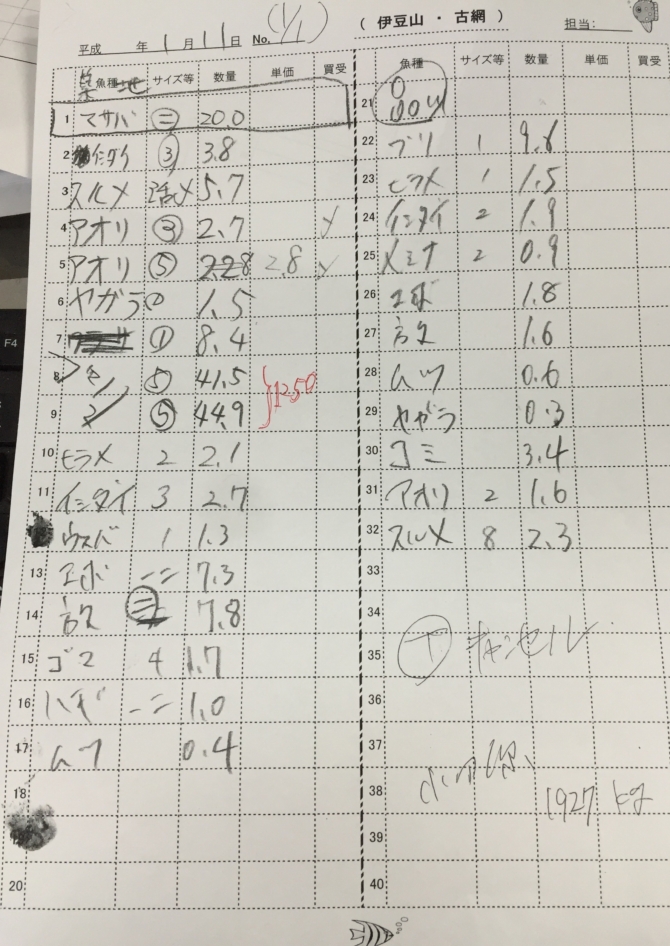 (1/1)
( 伊豆山 ・ 古網 )
担当:
平成 年 1月 11日 No.
魚種 サイズ等 数量 単価 買受
1 マサバ 二 20.0
2 イシダイ ③ 3.8
3 スルメ 活〆 5.7
4 アオリ ③ 2.7
5 アオリ ⑤ 2.8
6 ヤガラ 1.5
7 ① 8.4
8 ⑤ 41.5
9 ⑤ 44.9
1250
10 ヒラメ 2 2.1
11 イシダイ 3 2.7
ウスバ 1 1.3
13 エボ 二 7.3
14 三 7.8
15 ゴマ 4 1.7
16 ハギ 二 1.0
17 ムツ 0.4
18
20
魚種 サイズ等 数量 単価 買受
21
22 ブリ 1 9.6
23 ヒラメ 1 1.5
24 イシダイ 2 1.9
25 メジナ 2 0.9
26 エボ 1.8
27 1.6
28 ムツ 0.6
29 ヤガラ 0.3
30 3.4
31 アオリ 2 1.6
32 スルメ 8 2.3
33
34
35 キャンセル
36
37
38 1927 kg
39
40
F4